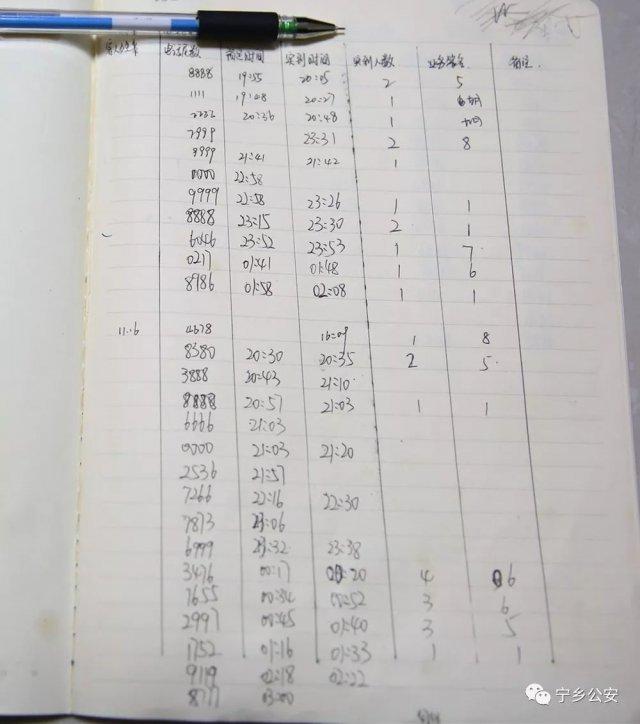 电话尾数 预定时间 实到时间 实到人数 业务基金 备注
8888 19:55 20:05 2 5
1111 19:48 20:27 1
2222 20:36 20:48 1
7999 23:31 2 8
9999 21:41 21:42 1
0000 22:58
9999 22:58 23:26 1 1
8888 23:15 23:30 2 1
6046 23:52 23:53 1 7
0217 01:41 01:48 1 6
8986 01:58 02:08 1 1
11.16 4678 16:09 1 8
8380 20:30 20:35 2 5
3888 20:43 21:10
8888 20:57 21:03 1 1
6666 21:03
0000 21:03 21:20
2536 21:57
7266 22:16 22:30
7873 23:06
6999 23:32 23:38
3476 00:17 00:20 4 6
7655 00:34 00:52 3 6
2997 00:45 01:40 3 5
1752 01:16 01:33 1 1
9119 02:18 02:22
8777 03:00
宁乡公安